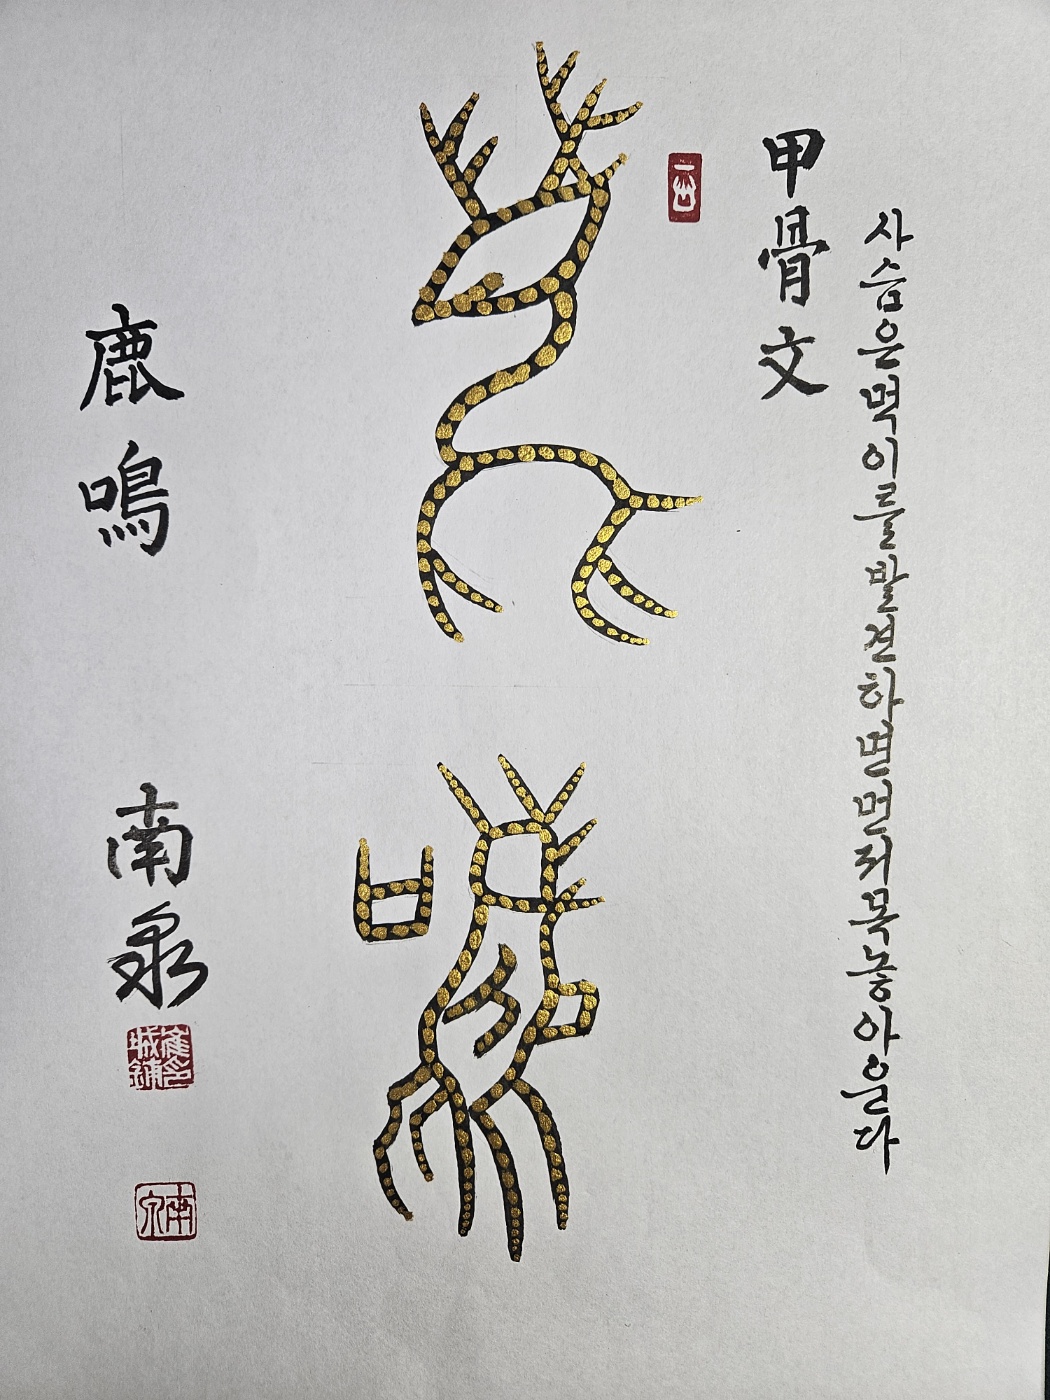 사슴은먹이를발견하면먼저목놓아운다
甲骨文
鹿鳴
鹿鳴
南泉
南泉